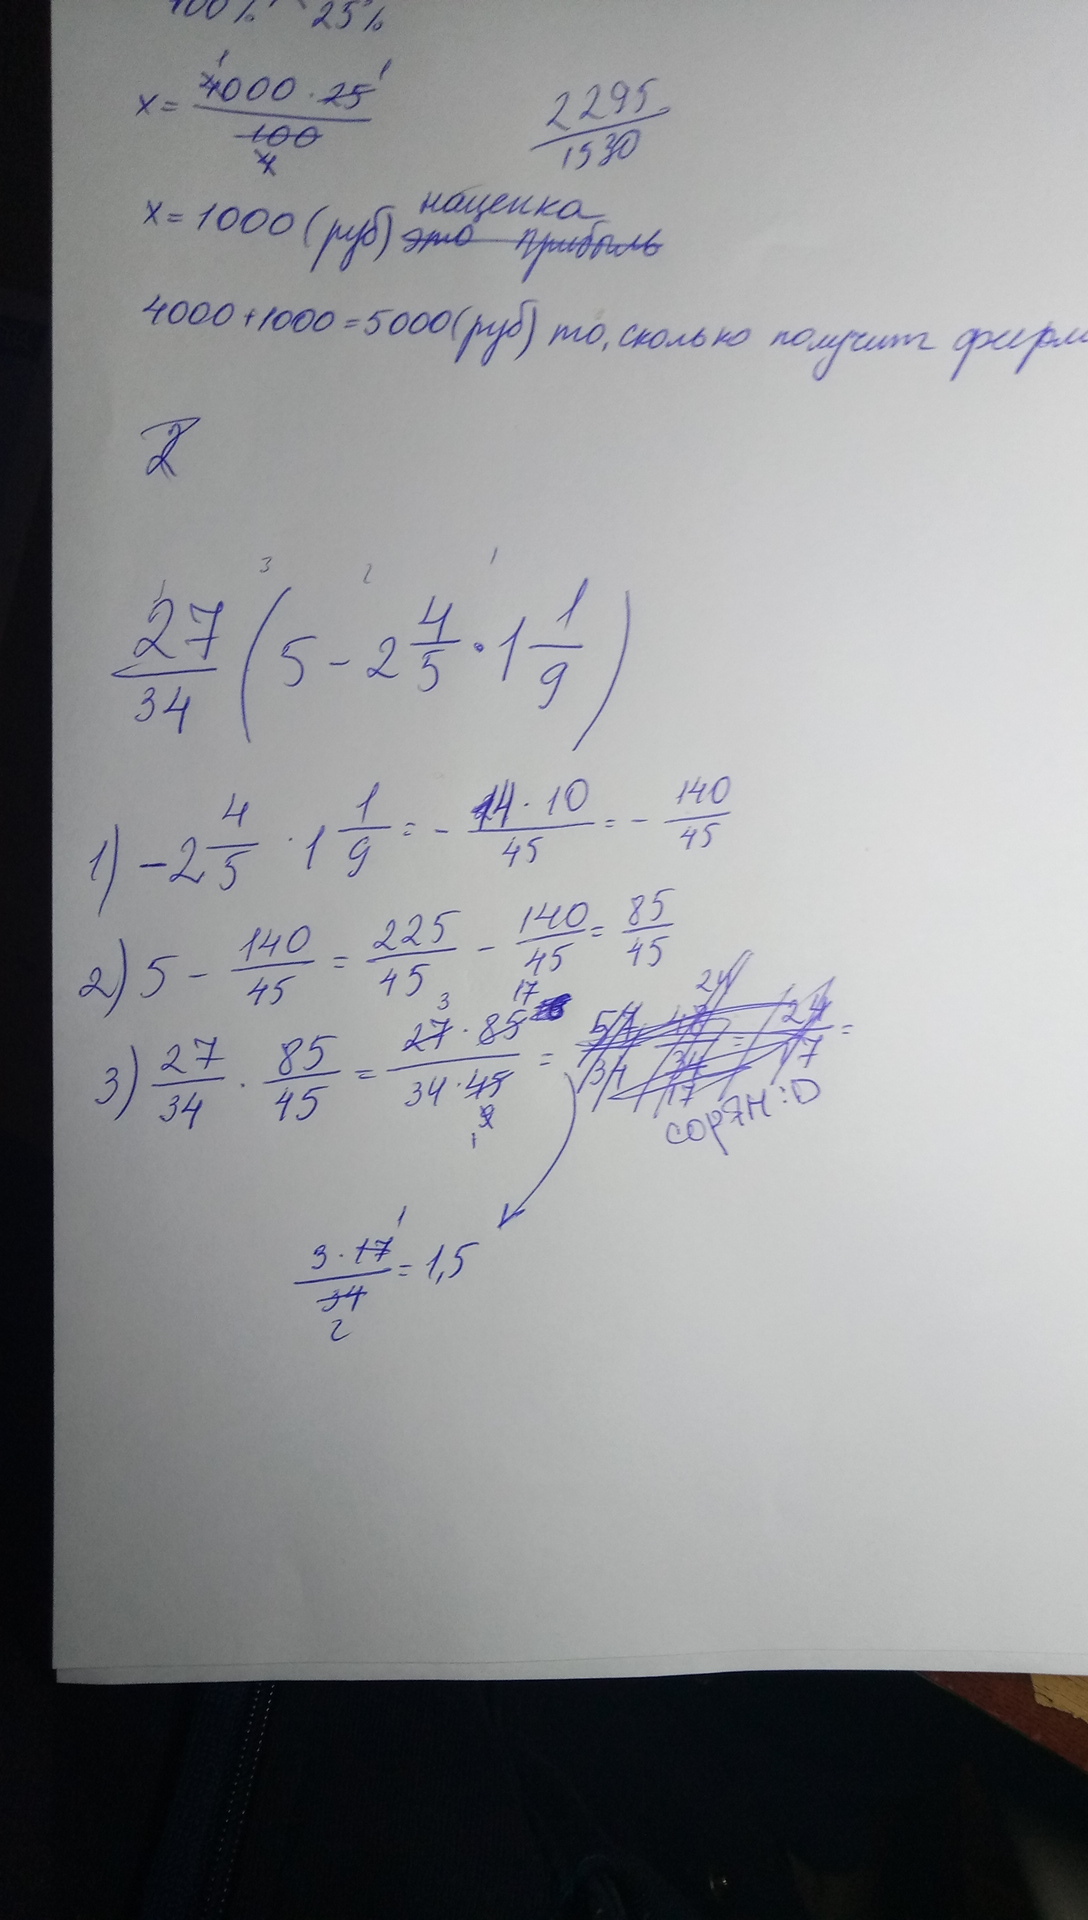 100% 25%
x = 4000 · 25 / 100
2295 / 1530
x = 1000 (руб) наценка
это прибыль
4000 + 1000 = 5000 (руб) то, сколько получит фирм
2
3 2 1
27/34 (5 - 2 4/5 · 1 1/9)
1) - 2 4/5 · 1 1/9 = - 14 · 10 / 45 = - 140/45
2) 5 - 140/45 = 225/45 - 140/45 = 85/45
3) 27/34 · 85/45 = 27 · 85 / 34 · 45 =
сорян :D
3 · 17 / 34 = 1,5